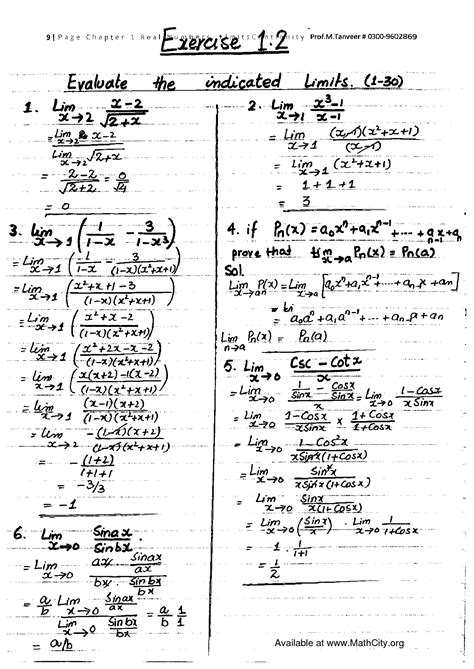 9 | Page Chapter 1 Real Numbers, Limits Continuity Prof.M.Tanveer # 0300-9602869
Exercise 1.2
Evaluate the indicated Limits. (1-30)
1. Lim x→2 (x-2)/√(2+x)
= Lim x→2 x-2
Lim x→2 √(2+x)
= (2-2)/√(2+2) = 0/√4
= 0
2. Lim x→1 (x³-1)/(x-1)
= Lim x→1 (x-1)(x²+x+1)/(x-1)
= Lim x→1 (x²+x+1)
= 1+1+1
= 3
3. Lim x→1 (1/(1-x) - 3/(1-x³))
= Lim x→1 (1/(1-x) - 3/((1-x)(x²+x+1)))
= Lim x→1 ((x²+x+1-3)/((1-x)(x²+x+1)))
= Lim x→1 ((x²+x-2)/((1-x)(x²+x+1)))
= Lim x→1 ((x²+2x-x-2)/((1-x)(x²+x+1)))
= Lim x→1 ((x(x+2)-1(x-2)/((1-x)(x²+x+1)))
= Lim x→1 ((x-1)(x+2)/((1-x)(x²+x+1)))
= Lim x→2 -(1-x)(x+2)/((1-x)(x²+x+1))
= -(1+2)/(1+1+1)
= -3/3
= -1
4. if Pn(x) = a₀xⁿ+a₁xⁿ⁻¹+....+aₙ₋₁x+aₙ
prove that Lim x→a Pn(x) = Pn(a)
Sol.
Lim x→a P(x) = Lim x→a [a₀xⁿ+a₁xⁿ⁻¹+....+aₙ₋₁x+an]
= a₀aⁿ+a₁aⁿ⁻¹+....+aₙ₋₁a+an
Lim n→a Pn(x) = Pn(a)
5. Lim x→0 (Csc - Cotx)/x
= Lim x→0 (1/Sinx - Cosx/Sinx)/x = Lim x→0 (1-Cosx)/(xSinx)
= Lim x→0 (1-Cosx)/(xSinx) × (1+Cosx)/(1+Cosx)
= Lim x→0 (1-Cos²x)/(xSinx(1+Cosx))
= Lim x→0 Sin²x/(xSinx(1+Cosx))
= Lim x→0 Sinx/(x(1+Cosx))
= Lim x→0 (Sinx/x) . Lim x→0 1/(1+Cosx)
= 1 . 1/(1+1)
= 1/2
6. Lim x→0 Sinax/Sinbx
= Lim x→0 (ax Sinax/ax)/(bx Sinbx/bx)
= a/b Lim x→0 Sinax/ax
Lim x→0 Sinbx/bx = a/b 1/1
= a/b
Available at www.MathCity.org